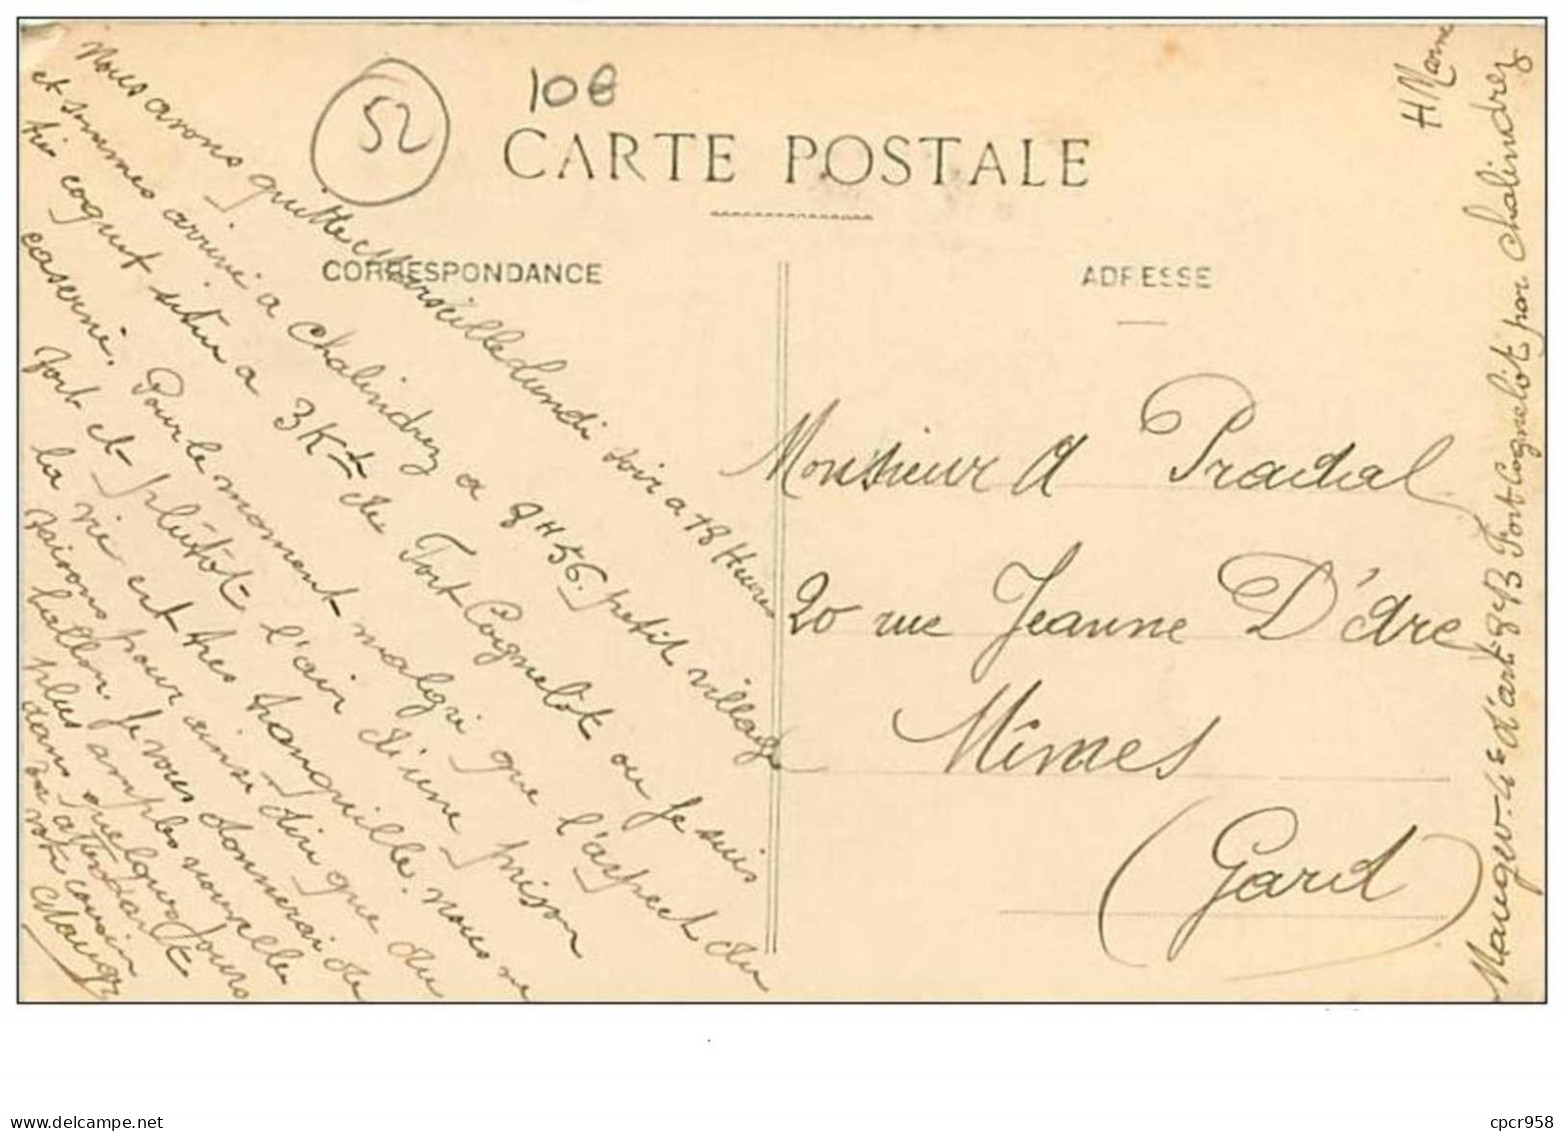 52
10€
CARTE POSTALE
CORRESPONDANCE
ADRESSE
Nous avons quitté Marseille Lundi soir a 18 Heures
et sommes arrivé a Chalindrez a 8H56. petit village
très coquet situ a 3 Kt de Fort Cognelôt ou je suis
caserné. Pour le moment malgré que l'aspect du
fort et plûtôt l'air d'une prison
la vie est très tranquille. nous ne
faisons pour ainsi dire que du
ballon. Je vous donnerai de
plus amples nouvelles
dans quelques jours
attendant
votre cousin
Mauger
Monsieur A Pradal
20 rue Jeanne D'Arc
Nîmes
(Gard)
Mauger. 4e d'art 84B Fort Cognelôt par Chalindrez
H Marne
www.delcampe.net
cpcr958